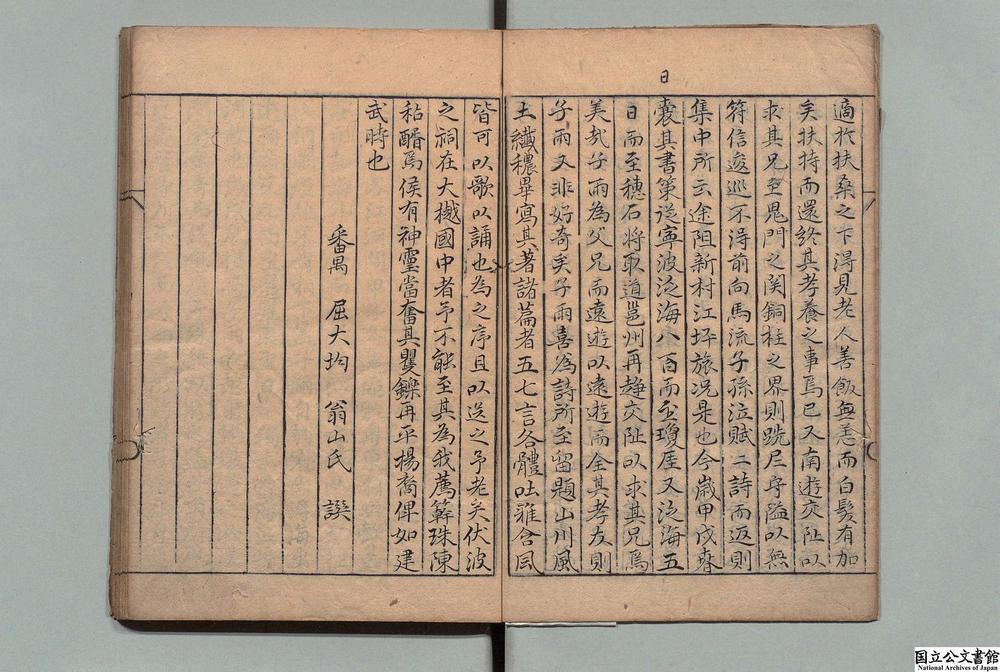 日
適於扶桑之下得見老人善飯無恙而白髮有加
矣扶持而還終其孝養之事焉已又南遊交阯以
求其兄至鬼門之関銅柱之界則跣足守隘以無
符信逡巡不得前向馬流子孫泣賦二詩而返則
集中所云途阻新村江坪旅况是也今歲甲戌春
囊其書策從寧波泛海八百而至瓊厓又泛海五
日而至穗石将取道邕州再趍交阯以求其兄焉
美哉子雨為父兄而遠遊以遠遊而全其孝友則
子雨又非好奇矣子雨喜為詩所至留題山川風
土纖穠畢寫其著諸篇者五七言各體吐雅含風
皆可以歌以誦也為之序且以送之予老矣伏波
之祠在大樾國中者予不能至其為我薦觧珠陳
秥醑焉侯有神靈當奮其矍鑠再平揚裔俾如建
武時也
番禺 屈大均 翁山氏 譔
国立公文書館
National Archives of Japan